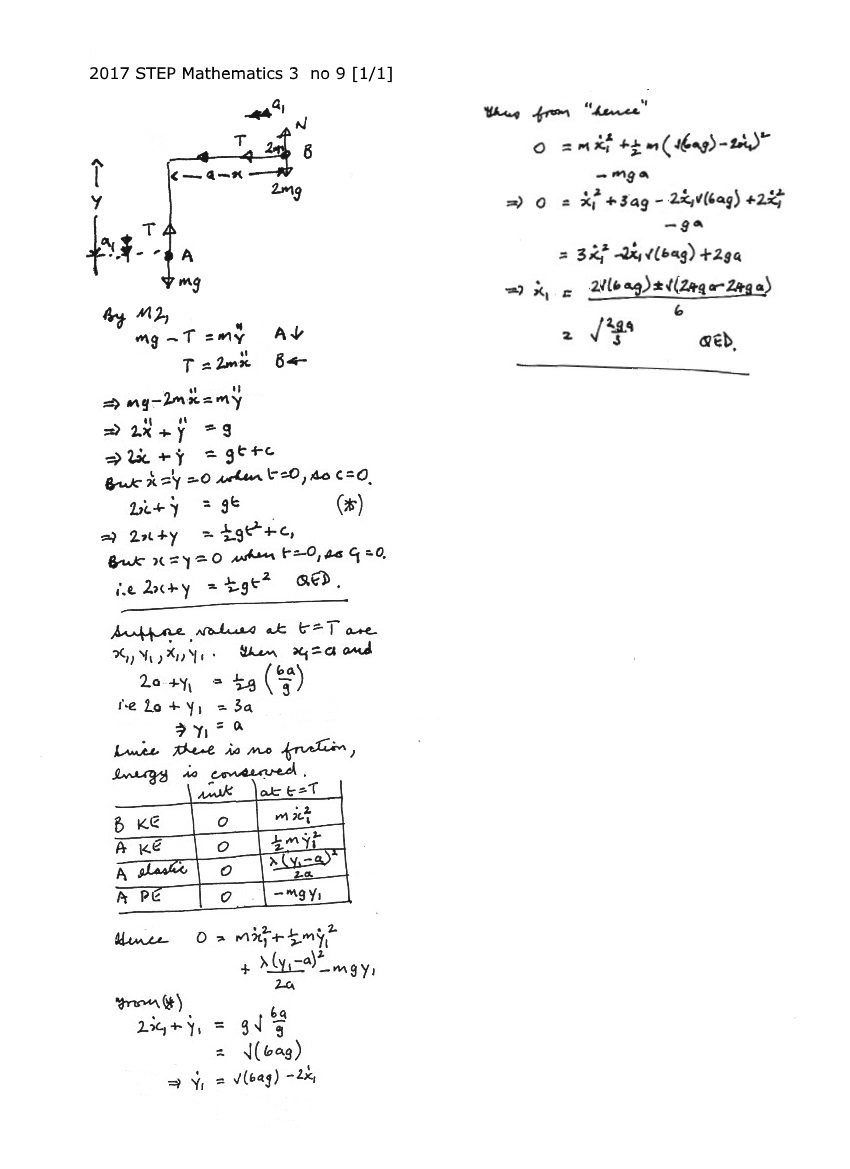 2017 STEP Mathematics 3 no 9 [1/1]
a₁
N
T 2m B
y <- a-x ->
2mg
T
a₁ A
mg
By M2,
mg - T = mÿ A↓
T = 2mẍ B←
⇒ mg - 2mẍ = mÿ
⇒ 2ẍ + ÿ = g
⇒ 2ẋ + ẏ = gt + c
But ẋ = ẏ = 0 when t=0, so c=0.
2ẋ + ẏ = gt (*)
⇒ 2x + y = ½gt² + c₁
But x = y = 0 when t=0, so c₁=0.
i.e 2x + y = ½gt² QED.
Suppose values at t=T are
x₁, y₁, ẋ₁, ẏ₁. Then x₁ = a and
2a + y₁ = ½g (6a/g)
i.e 2a + y₁ = 3a
⇒ y₁ = a
Since there is no friction,
energy is conserved.
init at t=T
B KE 0 mẋ₁²
A KE 0 ½mẏ₁²
A elastic 0 λ(y₁-a)²/2a
A PE 0 -mgy₁
Hence 0 = mẋ₁² + ½mẏ₁²
+ λ(y₁-a)²/2a - mgy₁
From (*)
2ẋ₁ + ẏ₁ = g√(6a/g)
= √(6ag)
⇒ ẏ₁ = √(6ag) - 2ẋ₁
Thus from "hence"
0 = mẋ₁² + ½m(√(6ag) - 2ẋ₁)²
- mga
⇒ 0 = ẋ₁² + 3ag - 2ẋ₁√(6ag) + 2ẋ₁²
- ga
= 3ẋ₁² - 2ẋ₁√(6ag) + 2ga
⇒ ẋ₁ = (2√(6ag) ± √(24ga - 24ga))/6
= √(2ga/3) QED.